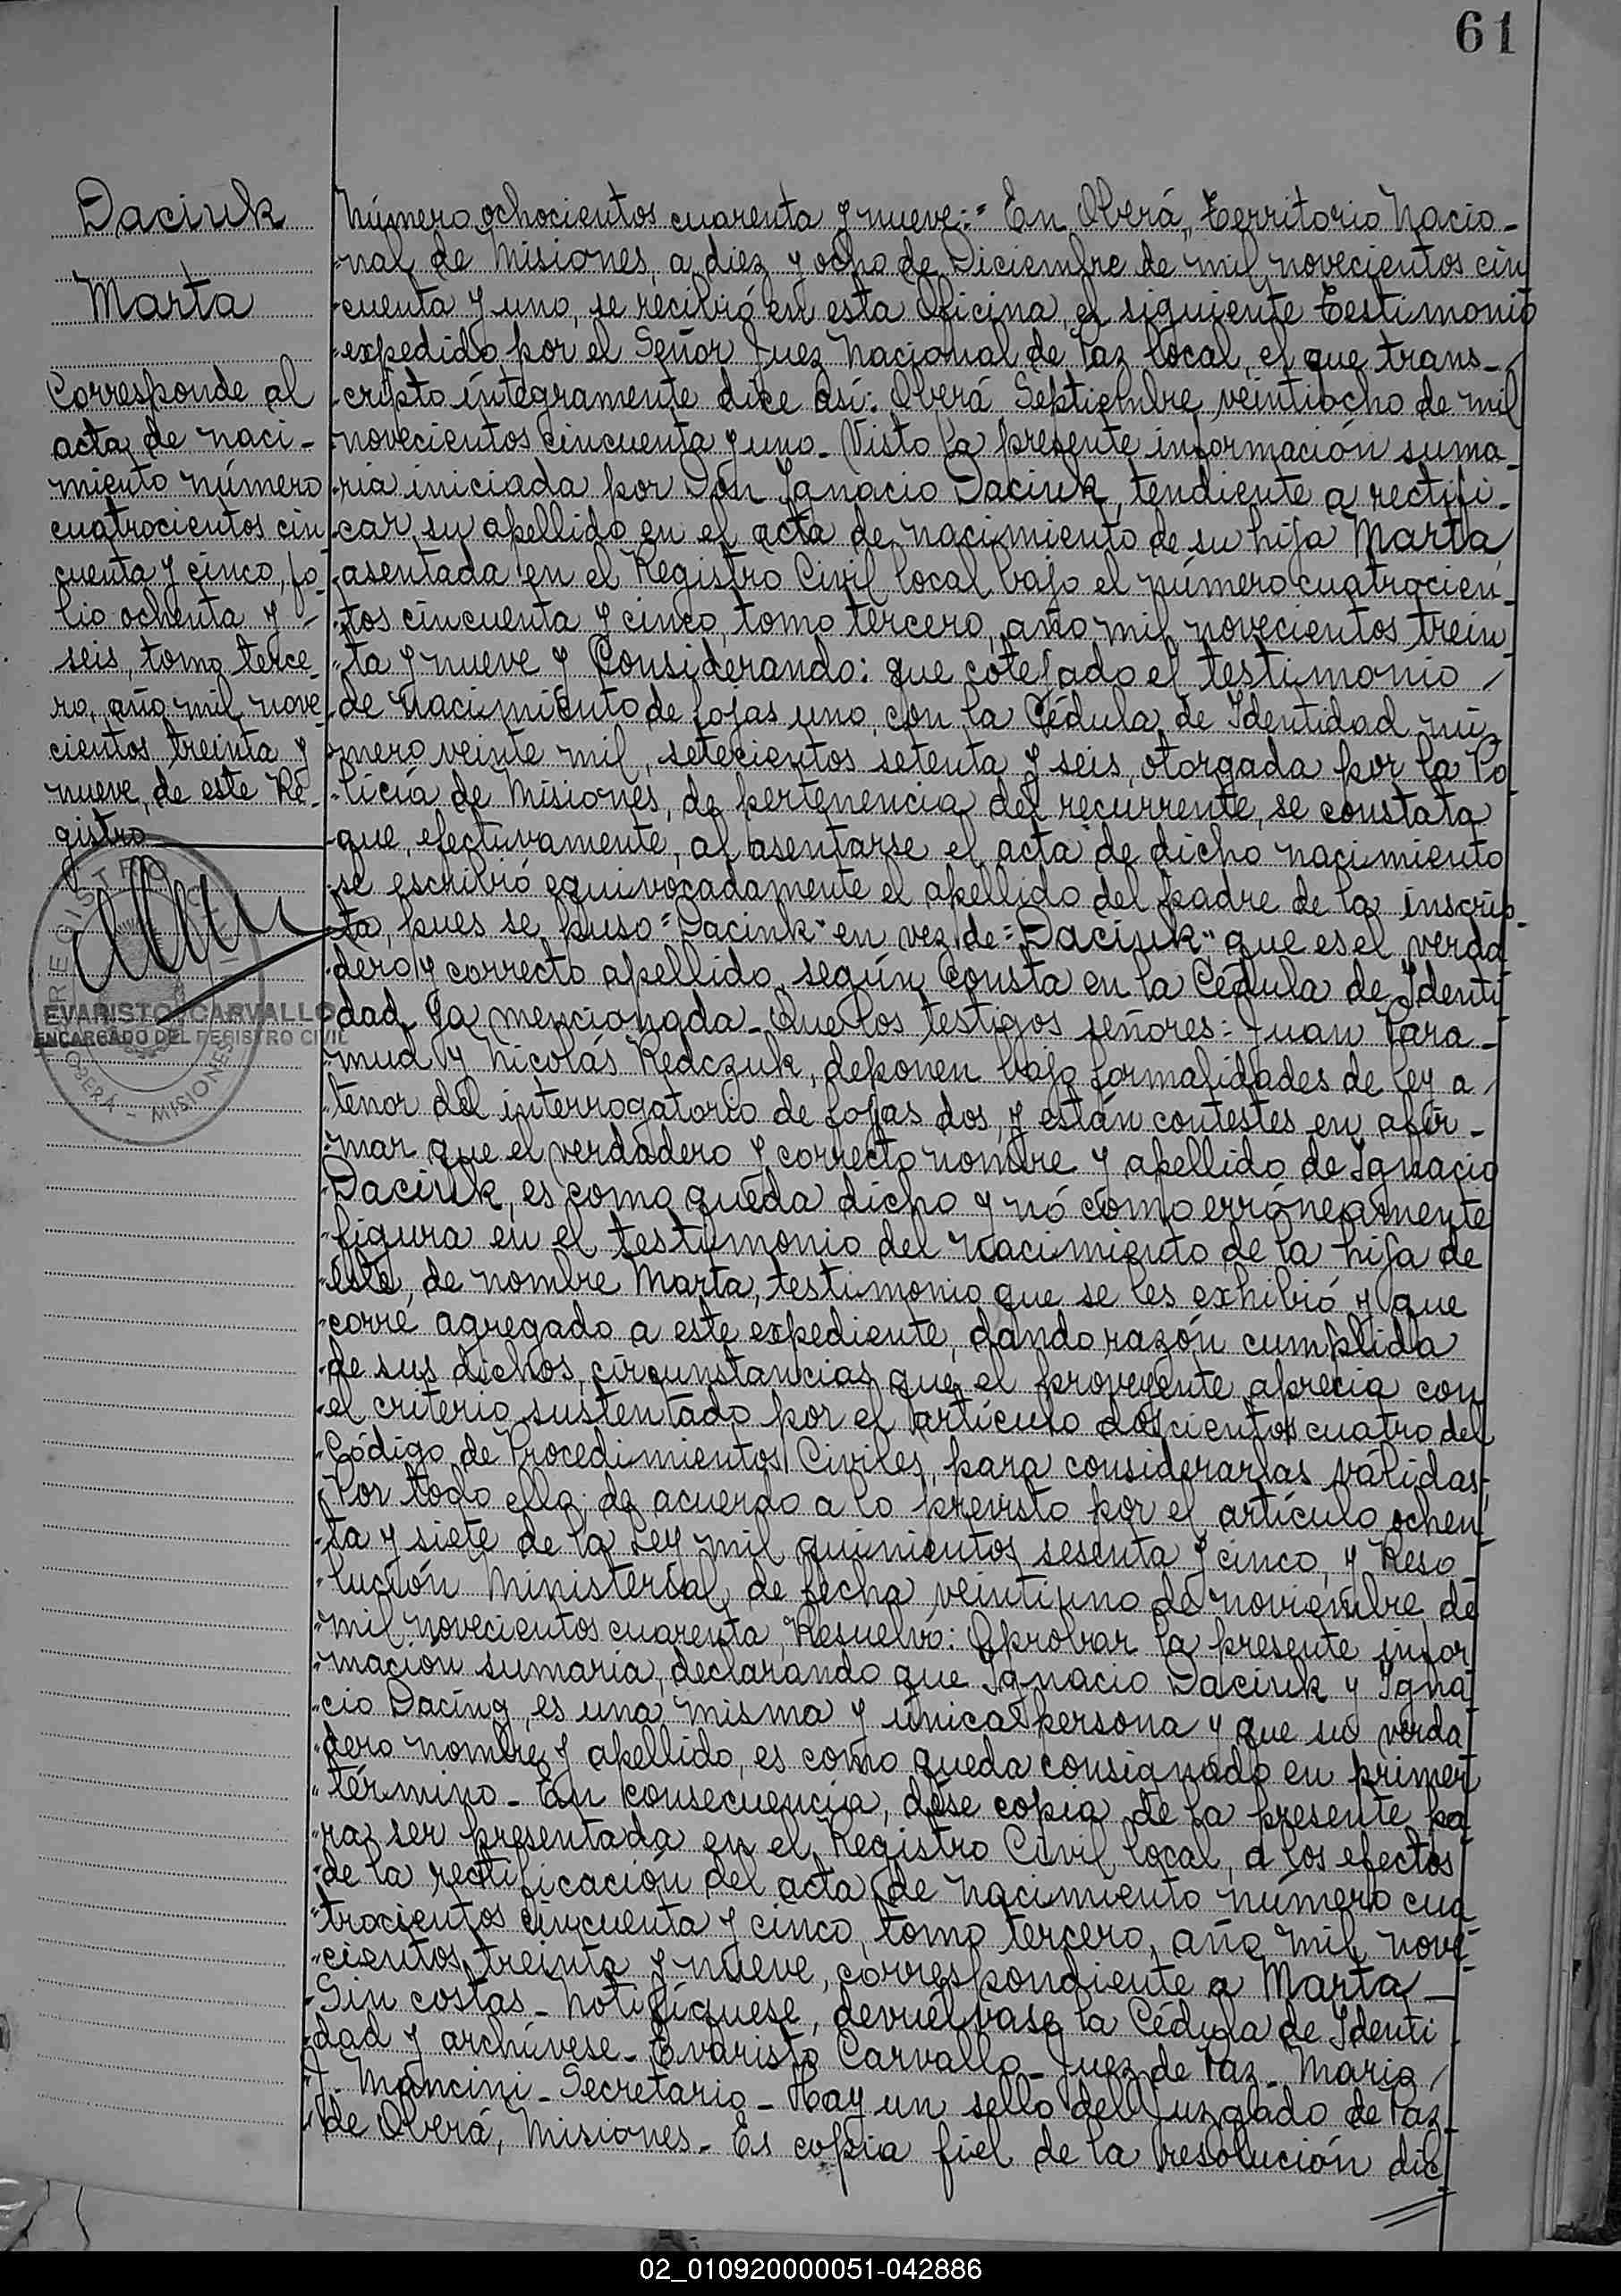 61
Daciuk
Marta
Corresponde al
acta de naci-
miento número
cuatrocientos cin
cuenta y cinco, fo-
lio ochenta y
seis, tomo terce-
ro, año mil nove-
cientos treinta y
nueve, de este Re-
gistro
REGISTRO CIVIL
EVARISTO CARVALLO
ENCARGADO DEL REGISTRO CIVIL
OBERÁ - MISIONES
Número ochocientos cuarenta y nueve:= En Oberá, Territorio Nacio-
nal de Misiones, a diez y ocho de Diciembre de mil novecientos cin
cuenta y uno, se recibió en esta Oficina, el siguiente Testimonio
expedido por el Señor Juez Nacional de Paz local, el que trans-
cripto íntegramente dice así: Oberá Septiembre, veintiocho de mil
novecientos cincuenta y uno. Visto la presente información suma-
ria iniciada por Don Ignacio Daciuk, tendiente a rectifi-
car su apellido en el acta de nacimiento de su hija Marta,
asentada en el Registro Civil local bajo el número cuatrocien-
tos cincuenta y cinco, tomo tercero, año mil novecientos trein
ta y nueve y Considerando: que cotejado el testimonio
de nacimiento de fojas uno, con la Cédula de Identidad nú-
mero veinte mil, setecientos setenta y seis, otorgada por la Po
licía de Misiones, de pertenencia del recurrente, se constata
que, efectivamente, al asentarse el acta de dicho nacimiento
se escribió equivocadamente el apellido del padre de la inscrip-
ta, pues se puso "Dacink" en vez de "Daciuk", que es el verda
dero y correcto apellido, según consta en la Cédula de Identi
dad ya mencionada. Que los testigos señores: Juan Para-
mud y Nicolás Redczuk, deponen bajo formalidades de ley a
tenor del interrogatorio de fojas dos, y están contestes en afir-
mar que el verdadero y correcto nombre y apellido de Ignacio
Daciuk, es como queda dicho y nó como erróneamente
figura en el testimonio del nacimiento de la hija de
éste, de nombre Marta, testimonio que se les exhibió y que
corre agregado a este expediente, dando razón cumplida
de sus dichos, circunstancias que el proveyente aprecia con
el criterio sustentado por el artículo doscientos cuatro del
Código de Procedimientos Civiles, para considerarlas válidas,
Por todo ello; de acuerdo a lo previsto por el artículo ochen
ta y siete de la Ley mil quinientos sesenta y cinco, y Reso-
lución Ministerial de fecha veintiuno de noviembre de
mil novecientos cuarenta, Resuelvo: Aprobar la presente infor
mación sumaria, declarando que Ignacio Daciuk y Igna
cio Dacing, es una misma y única persona y que su verda
dero nombre y apellido, es como queda consignado en primer
término. En consecuencia, dése copia de la presente pa
ra ser presentada en el Registro Civil local, a los efectos
de la rectificación del acta de nacimiento número cua
trocientos cincuenta y cinco, tomo tercero, año mil nove-
cientos treinta y nueve, correspondiente a Marta
Sin costas. Notifíquese, devuélvase la Cédula de Identi
dad y archívese. Evaristo Carvallo. Juez de Paz. Mario
J. Mancini. Secretario. Hay un sello del Juzgado de Paz
de Oberá, Misiones. Es copia fiel de la resolución dic
02_010920000051-042886